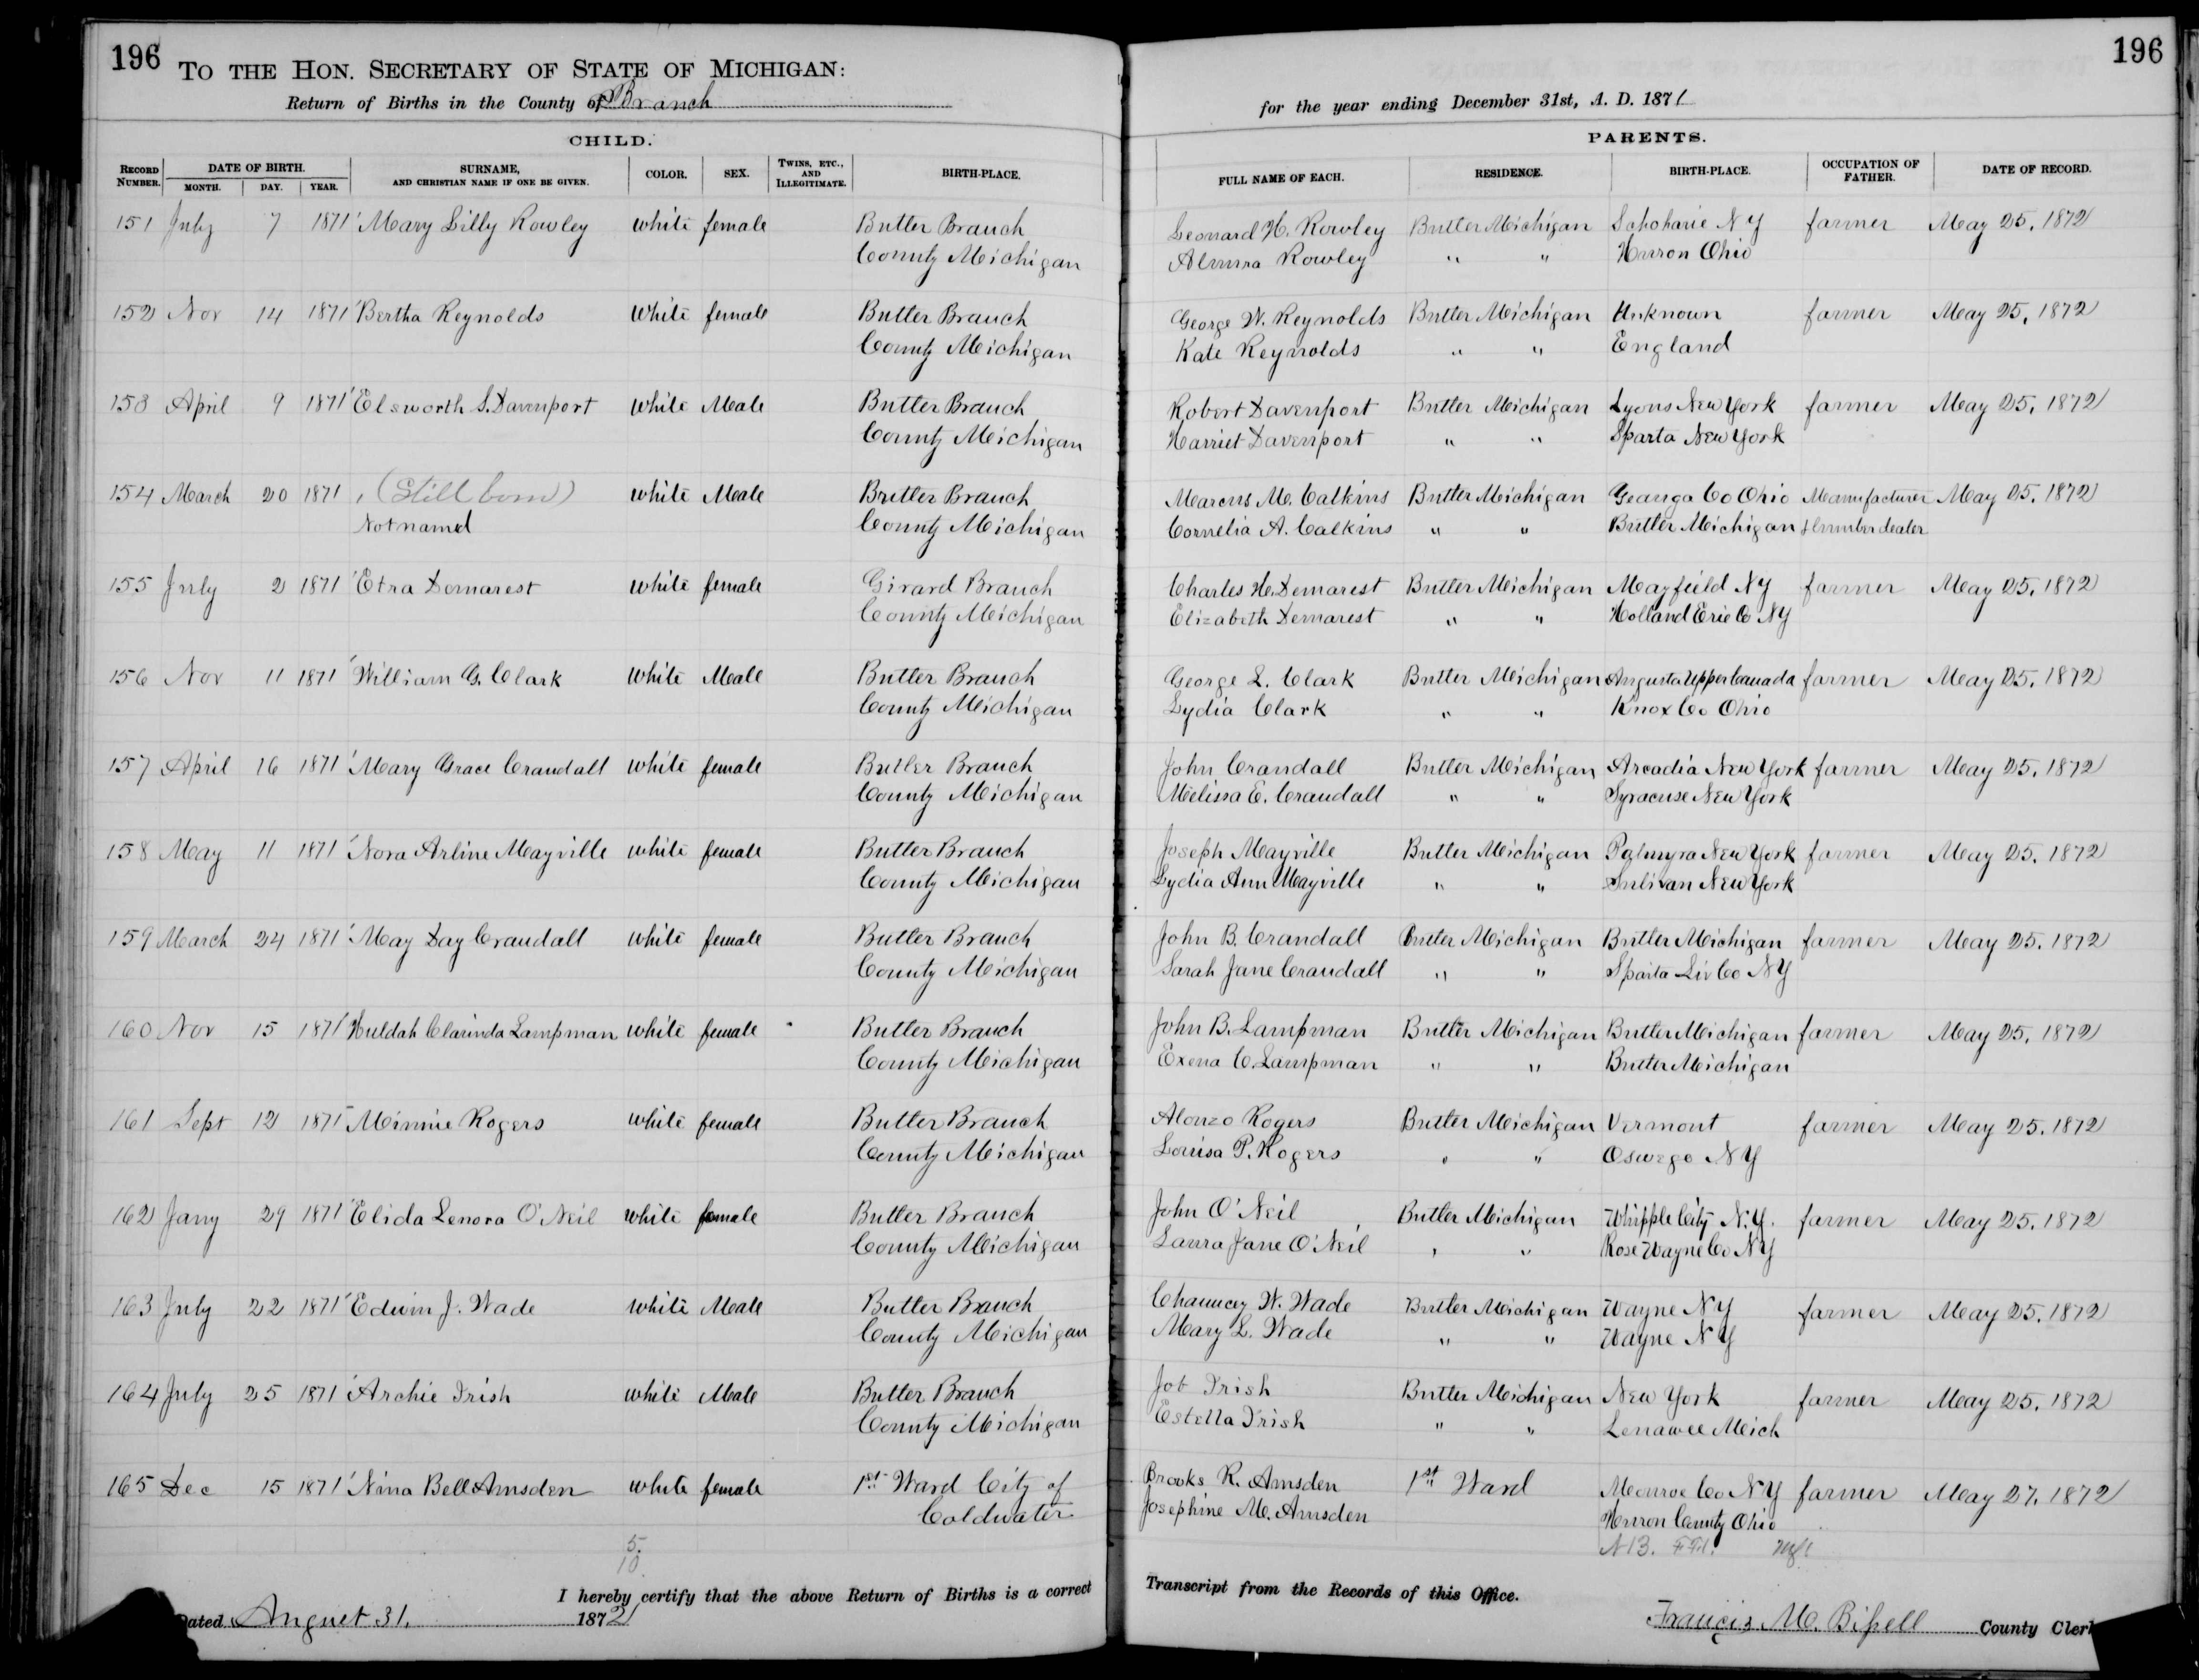 196 TO THE HON. SECRETARY OF STATE OF MICHIGAN:
Return of Births in the County of Branch
for the year ending December 31st, A. D. 1871
196
CHILD.
PARENTS.
RECORD NUMBER. DATE OF BIRTH. MONTH. DAY. YEAR. SURNAME, AND CHRISTIAN NAME IF ONE BE GIVEN. COLOR. SEX. TWINS, ETC., AND ILLEGITIMATE. BIRTH-PLACE. FULL NAME OF EACH. RESIDENCE. BIRTH-PLACE. OCCUPATION OF FATHER. DATE OF RECORD.
151 July 7 1871 Mary Lilly Rowley white female Butler Branch Leonard H. Rowley Butler Michigan Schoharie N Y farmer May 25, 1872
County Michigan Almira Rowley " " Huron Ohio
152 Nov 14 1871 Bertha Reynolds White female Butler Branch George W. Reynolds Butler Michigan Unknown farmer May 25, 1872
County Michigan Kate Reynolds " " England
153 April 9 1871 Elsworth S. Davenport White Male Butler Branch Robert Davenport Butler Michigan Lyons New York farmer May 25, 1872
County Michigan Harriet Davenport " " Sparta New York
154 March 20 1871 (Still born) white Male Butler Branch Marcus M. Calkins Butler Michigan Geauga Co Ohio Manufacturer May 25, 1872
Not named County Michigan Cornelia A. Calkins " " Butler Michigan & lumber dealer
155 July 2 1871 Etra Demarest white female Girard Branch Charles H. Demarest Butler Michigan Mayfield NY farmer May 25, 1872
County Michigan Elizabeth Demarest " " Holland Erie Co NY
156 Nov 11 1871 William G. Clark White Male Butler Branch George L. Clark Butler Michigan Augusta Upper Canada farmer May 25, 1872
County Michigan Lydia Clark " " Knox Co Ohio
157 April 16 1871 Mary Grace Crandall white female Butler Branch John Crandall Butler Michigan Arcadia New York farmer May 25, 1872
County Michigan Melissa E. Crandall " " Syracuse New York
158 May 11 1871 Nora Arline Mayville white female Butler Branch Joseph Mayville Butler Michigan Palmyra New York farmer May 25, 1872
County Michigan Lydia Ann Mayville " " Sulivan New York
159 March 24 1871 May Day Crandall white female Butler Branch John B. Crandall Butler Michigan Butler Michigan farmer May 25, 1872
County Michigan Sarah Jane Crandall " " Sparta Liv Co NY
160 Nov 15 1871 Huldah Clarinda Lampman white female Butler Branch John B. Lampman Butler Michigan Butler Michigan farmer May 25, 1872
County Michigan Exena C. Lampman " " Butler Michigan
161 Sept 12 1871 Minnie Rogers white female Butler Branch Alonzo Rogers Butler Michigan Vermont farmer May 25, 1872
County Michigan Louisa P. Rogers " " Oswego N Y
162 Jany 29 1871 Elida Lenora O'Neil white female Butler Branch John O'Neil Butler Michigan Whipple City N.Y. farmer May 25, 1872
County Michigan Laura Jane O'Neil " " Rose Wayne Co NY
163 July 22 1871 Edwin J. Wade white Male Butler Branch Chauncey W. Wade Butler Michigan Wayne NY farmer May 25, 1872
County Michigan Mary L. Wade " " Wayne NY
164 July 25 1871 Archie Irish white Male Butler Branch Job Irish Butler Michigan New York farmer May 25, 1872
County Michigan Estella Irish " " Lenawee Mich
165 Dec 15 1871 Nina Bell Amsden white female 1st Ward City of Brooks R. Amsden 1st Ward Monroe Co NY farmer May 27, 1872
Coldwater Josephine M. Amsden Huron County Ohio
5.
10.
N B.
I hereby certify that the above Return of Births is a correct Transcript from the Records of this Office.
Dated August 31, 1872
Francis M. Bissell County Clerk